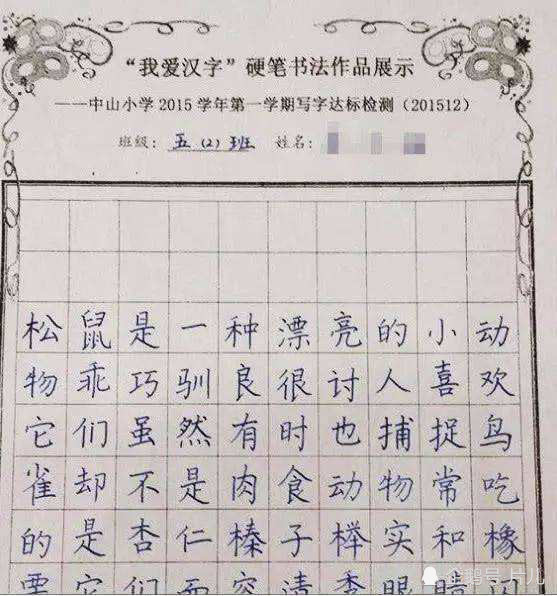 “我爱汉字”硬笔书法作品展示
——中山小学 2015 学年第一学期写字达标检测（201512）
班级： 五（2）班 姓名：
松鼠是一种漂亮的小动
物乖巧驯良很讨人喜欢
它们虽然有时也捕捉鸟
雀却不是肉食动物常吃
的是杏仁榛子榉实和橡
栗它们面容清秀眼睛闪
企鹅号 片儿